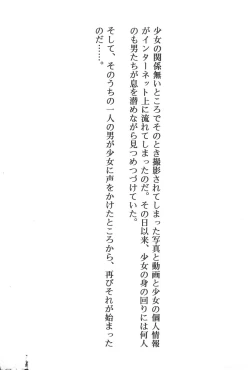 少女の関係無いところでそのとき撮影されてしまった写真と動画と少女の個人情報
がインターネット上に流れてしまったのだ。その日以来、少女の身の回りには何人
のも男たちが息を潜めながら見つめつづけていた。
そして、そのうちの一人の男が少女に声をかけたところから、再びそれが始まった
のだ……。